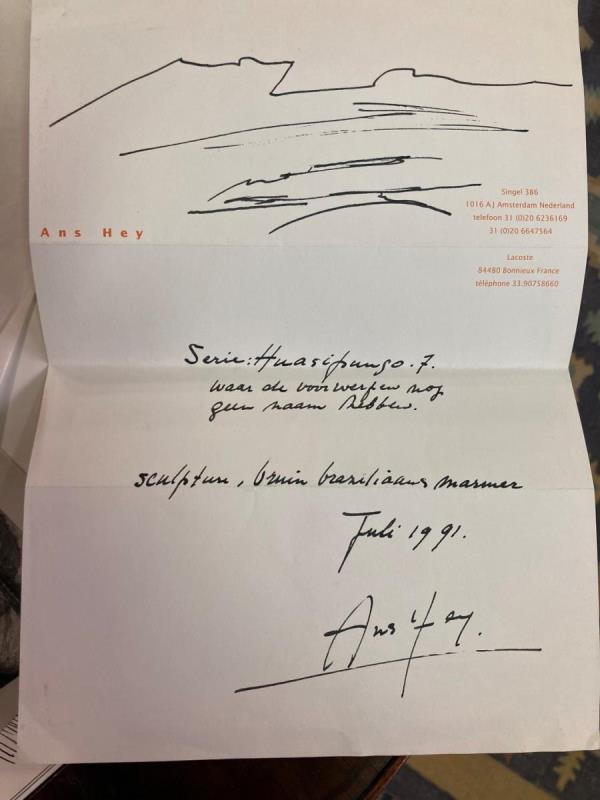 Singel 386
1016 AJ Amsterdam Nederland
telefoon 31 (0)20 6236169
31 (0)20 6647564
Ans Hey
Lacoste
84480 Bonnieux France
téléphone 33.90758660
Serie: Huasipungo. 7.
waar de voorwerpen nog
geen naam hebben.
sculpture, bruin braziliaans marmer
Juli 1991.
Ans Hey.